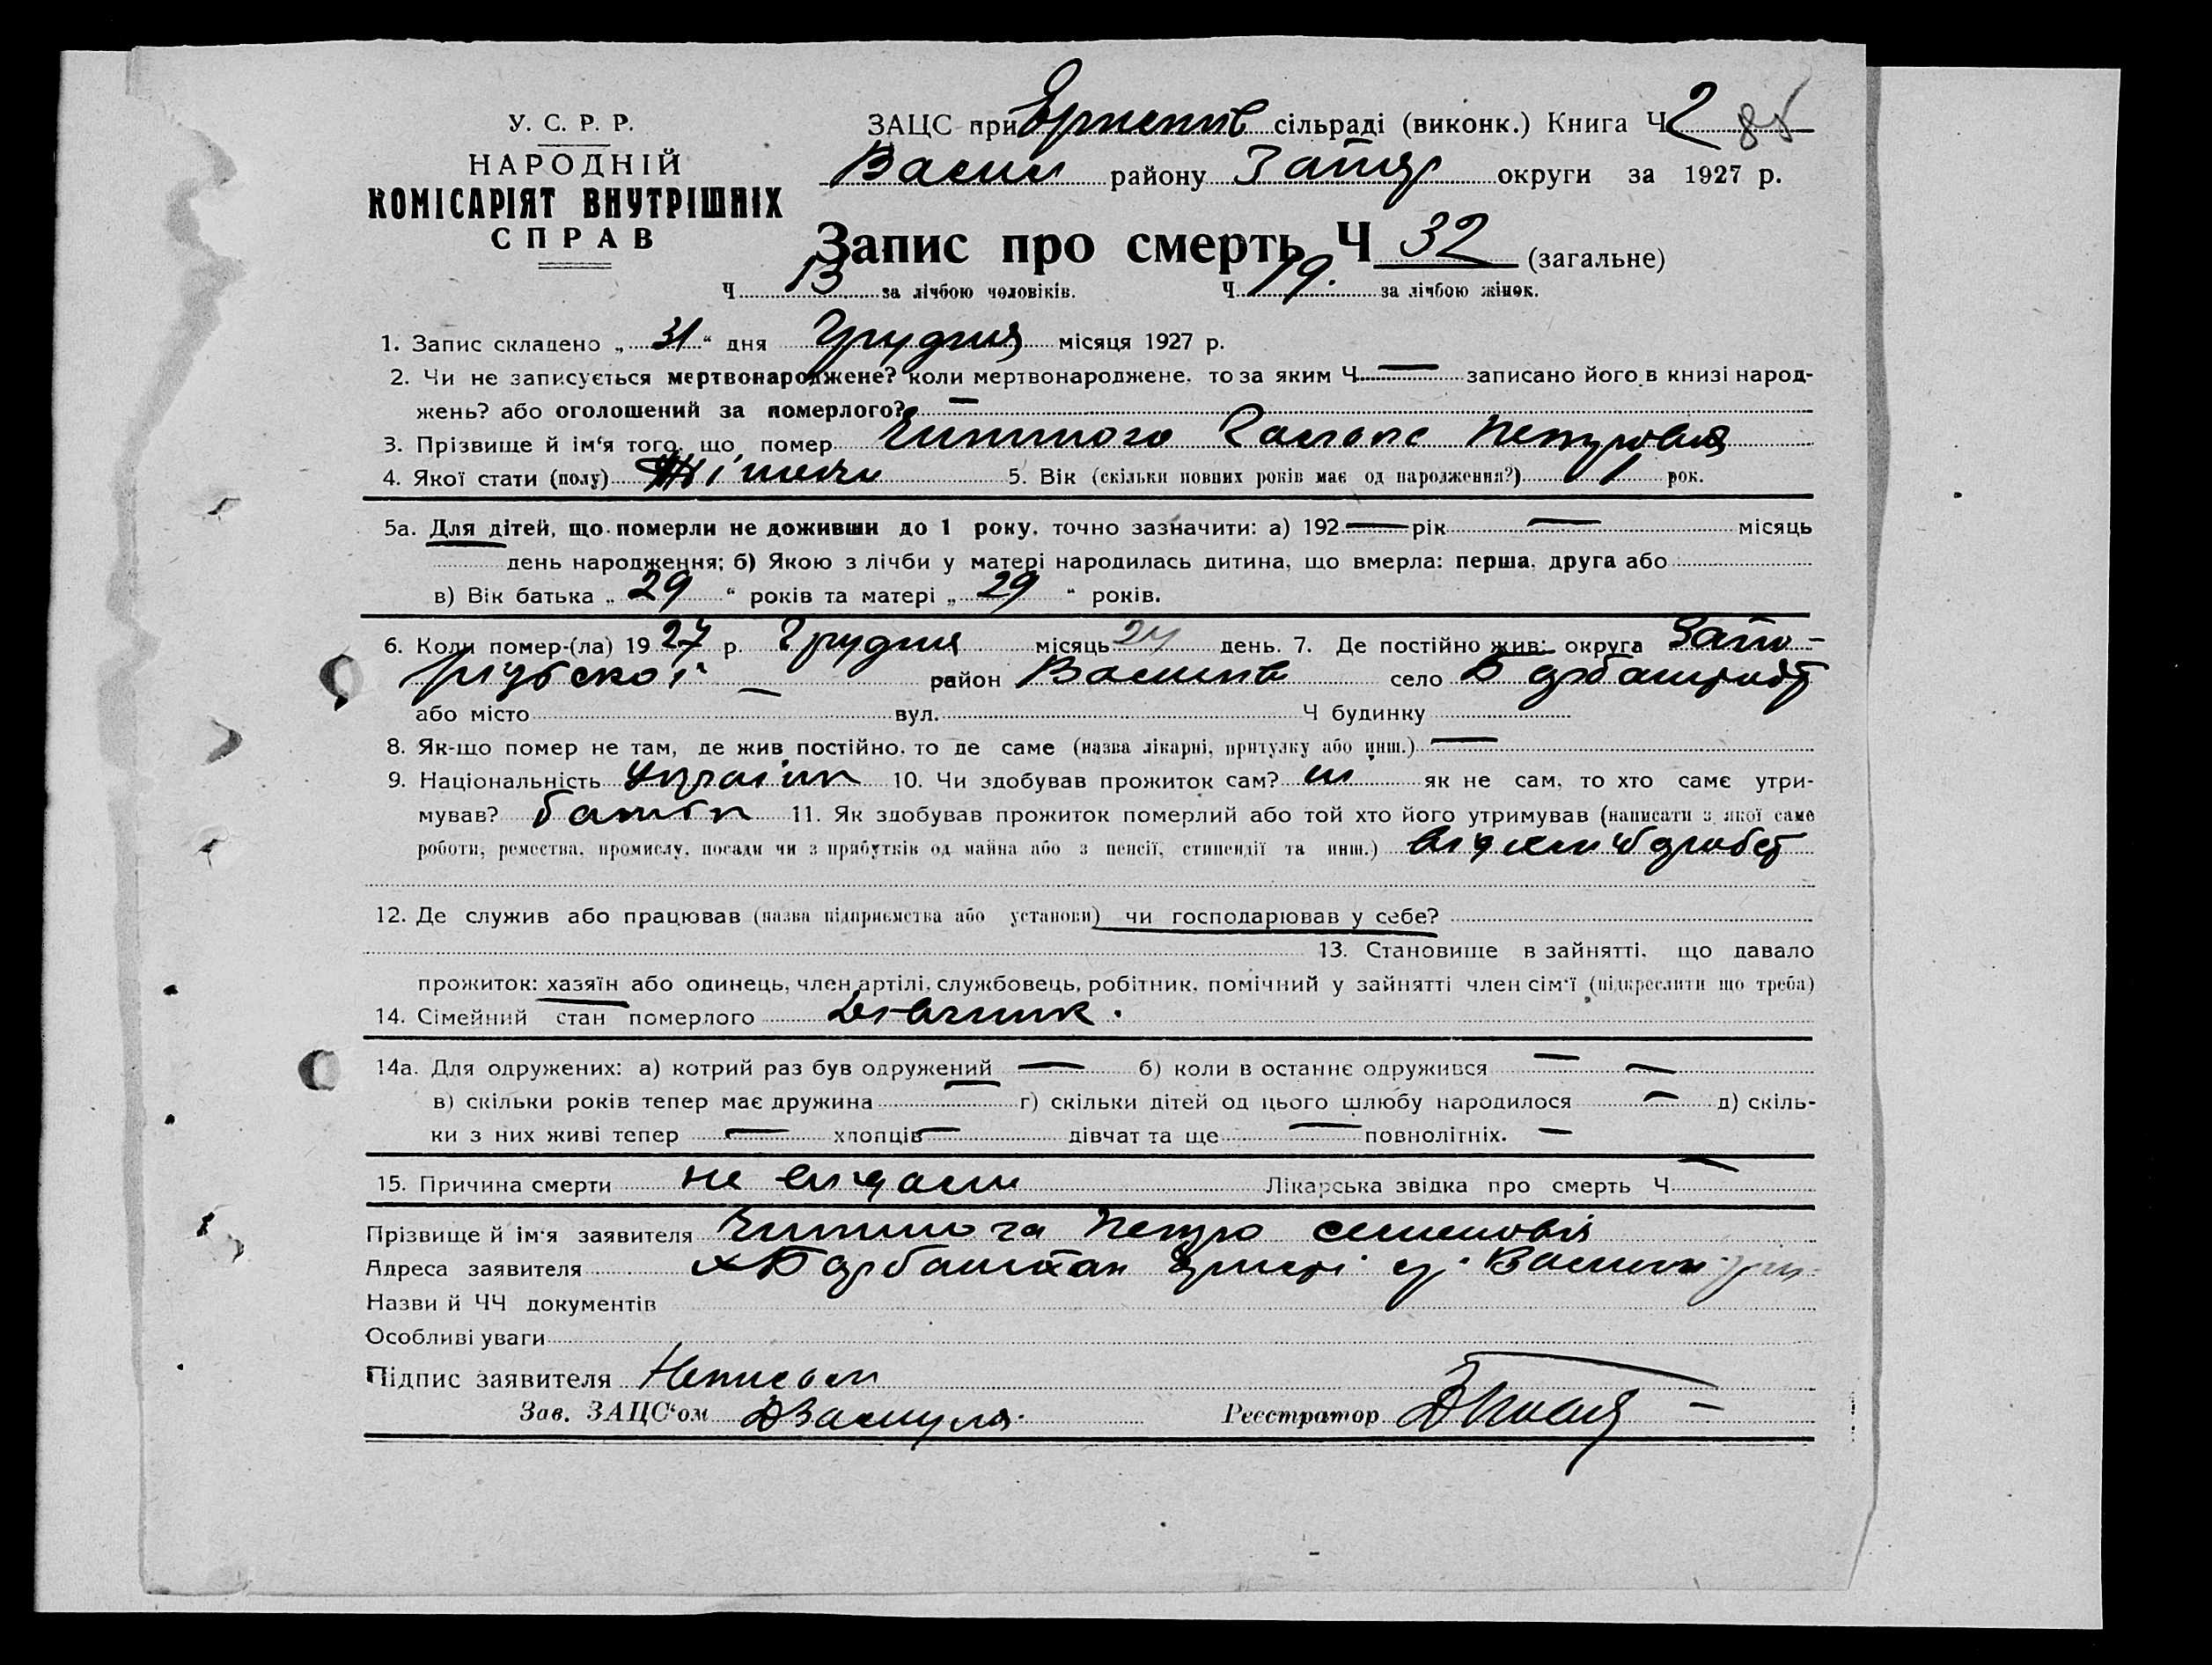 У. С. Р. Р.
НАРОДНІЙ
КОМІСАРІЯТ ВНУТРІШНІХ
СПРАВ
ЗАЦС при сільраді (виконк.) Книга Ч 2 85
Васил району Запор округи за 1927 р.
Запис про смерть Ч 32 (загальне)
Ч 13 за лічбою чоловіків. Ч 19. за лічбою жінок.
1. Запис складено „ 31 “ дня Грудня місяця 1927 р.
2. Чи не записується мертвонароджене? коли мертвонароджене, то за яким Ч — записано його в книзі народ-
жень? або оголошений за померлого? —
3. Прізвище й ім'я того, що помер Петровна
4. Якої стати (полу) Жіночи 5. Вік (скільки повних років має од народження?) 1 рок.
5а. Для дітей, що померли не доживши до 1 року, точно зазначити: а) 192 — рік — місяць
день народження; б) Якою з лічби у матері народилась дитина, що вмерла: перша, друга або
в) Вік батька „ 29 “ років та матері „ 29 “ років.
6. Коли помер-(ла) 19 27 р. Грудня місяць день. 7. Де постійно жив: округа Запо-
різьскої — район Василів село
або місто вул. Ч будинку
8. Як-що помер не там, де жив постійно, то де саме (назва лікарні, притулку або инш.) —
9. Національність Україн 10. Чи здобував прожиток сам? ні як не сам, то хто саме утри-
мував? батьк 11. Як здобував прожиток померлий або той хто його утримував (написати з якої саме
роботи, ремества, промислу, посади чи з прибутків од майна або з пенсії, стипендії та инш.) від
12. Де служив або працював (назва підприємства або установи) чи господарював у себе?
13. Становище в зайнятті, що давало
прожиток: хазяїн або одинець, член артілі, службовець, робітник, помічний у зайнятті член сім'ї (підкреслити що треба)
14. Сімейний стан померлого
14а. Для одружених: а) котрий раз був одружений — б) коли в останнє одружився — —
в) скільки років тепер має дружина — г) скільки дітей од цього шлюбу народилося — д) скіль-
ки з них живі тепер — хлопців — дівчат та ще — повнолітніх. —
15. Причина смерти не Лікарська звідка про смерть Ч —
Прізвище й ім'я заявителя Петро Семенович
Адреса заявителя
Назви й ЧЧ документів
Особливі уваги
Підпис заявителя
Зав. ЗАЦС'ом Реєстратор